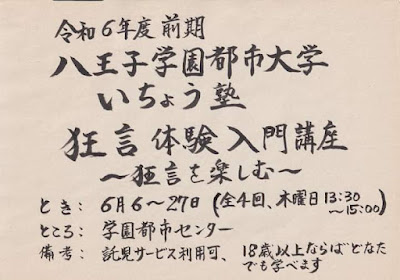 令和6年度 前期
八王子学園都市大学
いちょう塾
狂言 体験 入門講座
～狂言を楽しむ～
とき： 6月6～27日（全4回、木曜日13:30
～15:00）
ところ： 学園都市センター
備考： 託児サービス利用可、18歳以上ならばどなた
でも学べます